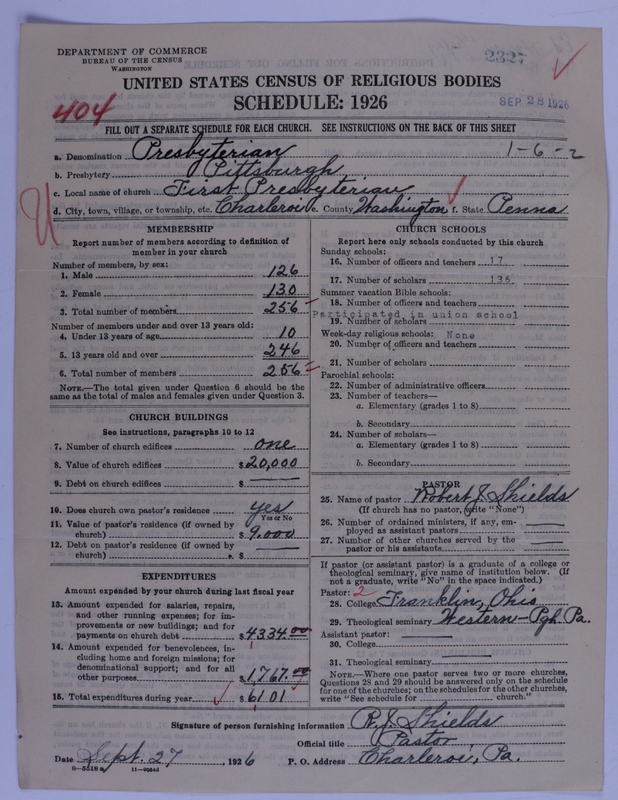 DEPARTMENT OF COMMERCE
BUREAU OF THE CENSUS
WASHINGTON
2327
UNITED STATES CENSUS OF RELIGIOUS BODIES
SCHEDULE: 1926
404
SEP 28 1926
FILL OUT A SEPARATE SCHEDULE FOR EACH CHURCH. SEE INSTRUCTIONS ON THE BACK OF THIS SHEET
a. Denomination Presbyterian 1-6-2
b. Presbytery Pittsburgh
c. Local name of church First Presbyterian
d. City, town, village, or township, etc. Charleroi e. County Washington f. State Penna
MEMBERSHIP
Report number of members according to definition of
member in your church
Number of members, by sex:
1. Male 126
2. Female 130
3. Total number of members 256
Number of members under and over 13 years old:
4. Under 13 years of age 10
5. 13 years old and over 246
6. Total number of members 256
NOTE.—The total given under Question 6 should be the
same as the total of males and females given under Question 3.
CHURCH BUILDINGS
See instructions, paragraphs 10 to 12
7. Number of church edifices one
8. Value of church edifices $20,000
9. Debt on church edifices $
10. Does church own pastor's residence yes
Yes or No
11. Value of pastor's residence (if owned by
church) $ 9,000
12. Debt on pastor's residence (if owned by
church) $
EXPENDITURES
Amount expended by your church during last fiscal year
13. Amount expended for salaries, repairs,
and other running expenses; for im-
provements or new buildings; and for
payments on church debt $4334.00
14. Amount expended for benevolences, in-
cluding home and foreign missions; for
denominational support; and for all
other purposes $1,767.00
15. Total expenditures during year $6101
CHURCH SCHOOLS
Report here only schools conducted by this church
Sunday schools:
16. Number of officers and teachers 17
17. Number of scholars 135
Summer vacation Bible schools:
18. Number of officers and teachers
Participated in union school
19. Number of scholars
Week-day religious schools: None
20. Number of officers and teachers
21. Number of scholars
Parochial schools:
22. Number of administrative officers
23. Number of teachers—
a. Elementary (grades 1 to 8)
b. Secondary
24. Number of scholars—
a. Elementary (grades 1 to 8)
b. Secondary
PASTOR
25. Name of pastor Robert J. Shields
(If church has no pastor, write "None")
26. Number of ordained ministers, if any, em-
ployed as assistant pastors
27. Number of other churches served by the
pastor or his assistants
If pastor (or assistant pastor) is a graduate of a college or
theological seminary, give name of institution below. (If
not a graduate, write "No" in the space indicated.)
Pastor: 2
28. College Franklin, Ohio
29. Theological seminary Western-Pgh. Pa.
Assistant pastor:
30. College
31. Theological seminary
NOTE.—Where one pastor serves two or more churches,
Questions 28 and 29 should be answered only on the schedule
for one of the churches; on the schedules for the other churches,
write "See schedule for church."
Signature of person furnishing information R. J. Shields
Official title Pastor
Date Sept. 27, 1926 P. O. Address Charleroi, Pa.